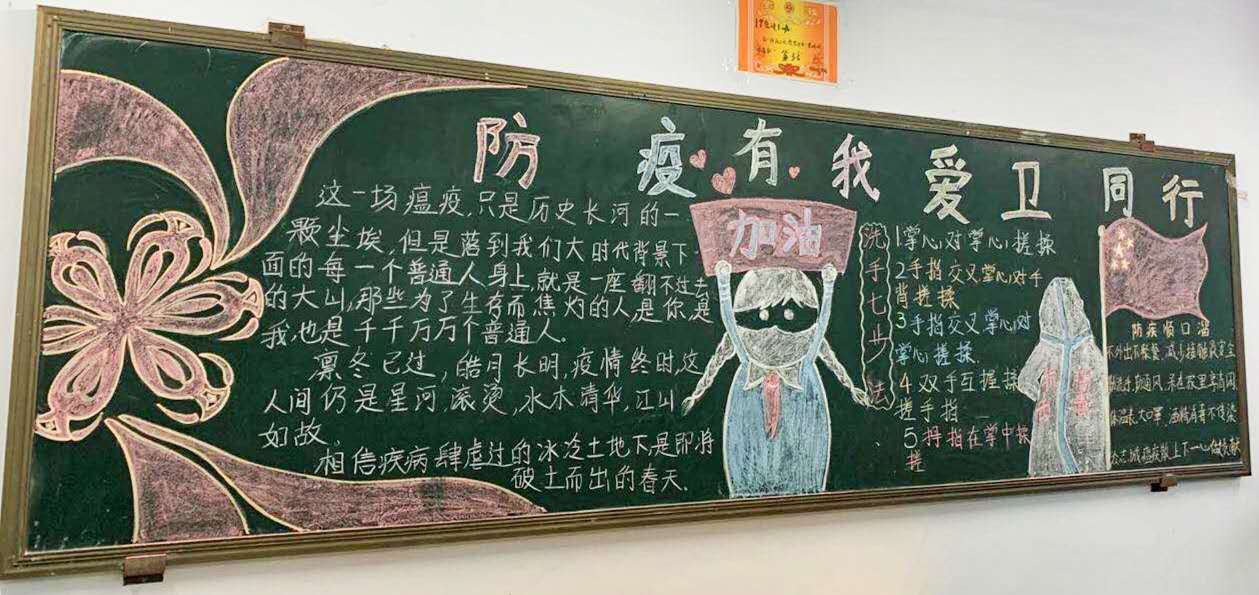 防疫有我 爱卫同行
这一场瘟疫，只是历史长河的一
颗尘埃，但是落到我们大时代背景下
面的每一个普通人身上，就是一座翻不过去
的大山，那些为了生存而焦灼的人，是你，是
我，也是千千万万个普通人。
凛冬已过，皓月长明，疫情终时，这
人间仍是星河滚烫，水木清华，江山
如故。
相信疾病肆虐过的冰冷土地下是即将
破土而出的春天。
加油
洗手七步法
1掌心对掌心搓揉
2手指交叉掌心对手
背搓揉
3手指交叉掌心对
掌心搓揉
4双手互握揉
搓手指
5拇指在掌中揉
搓
防疾顺口溜